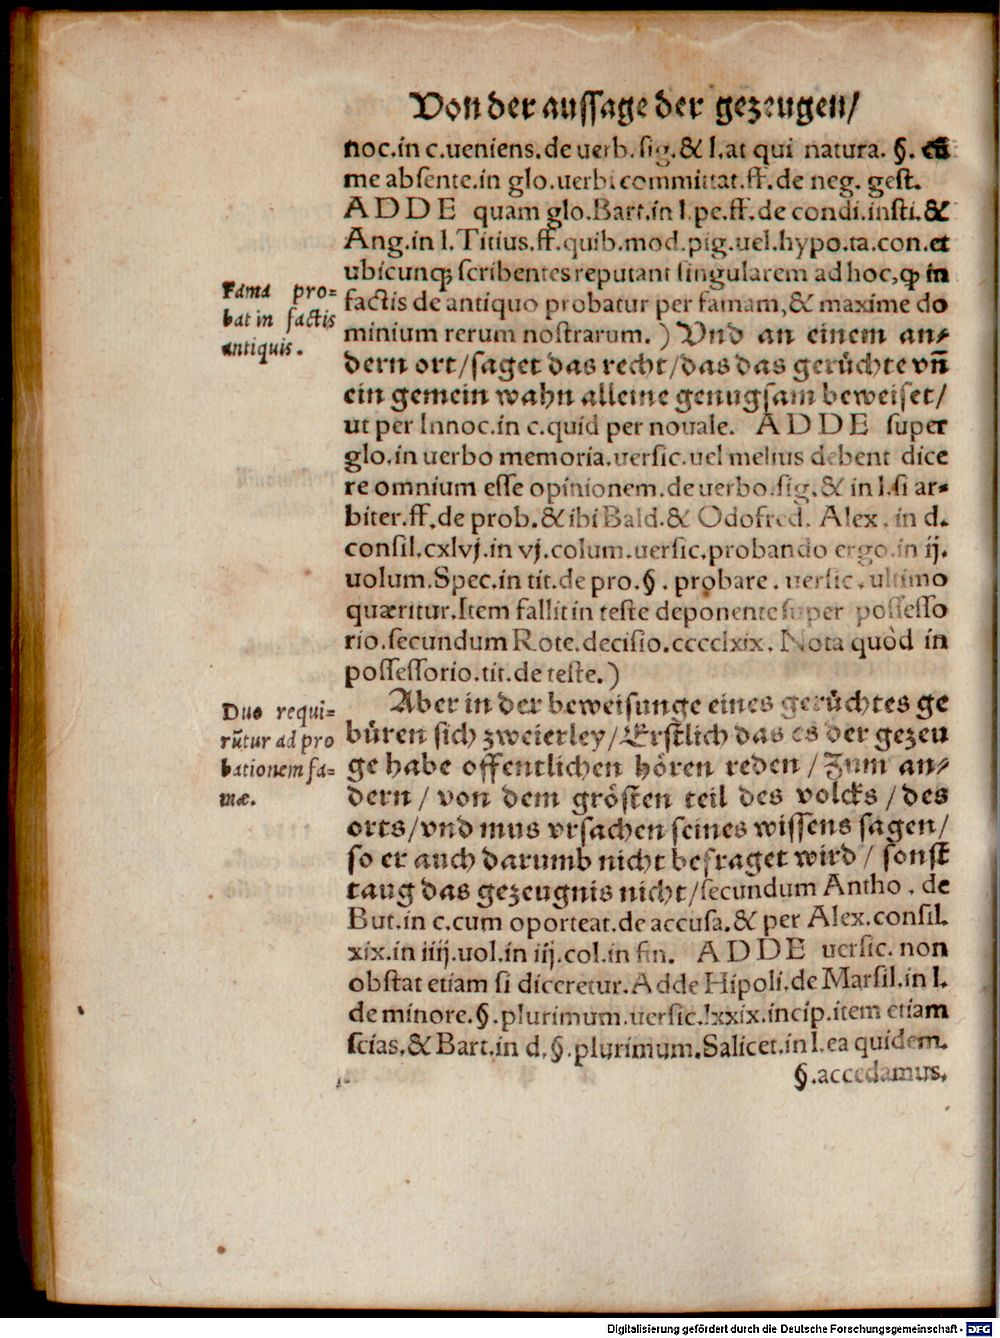 Von der aussage der gezeugen/
noc.in c.ueniens.de uerb.sig.& l.at qui natura. §. cũ
me absente.in glo.uerbi committat.ff.de neg. gest.
ADDE quam glo.Bart.in l.pe.ff.de condi.insti.&
Ang.in l.Titius.ff.quib.mod.pig.uel.hypo.ta.con.et
ubicunq; scribentes reputant singularem ad hoc,ꝙ in
Fama pro=
bat in factis
antiquis.
factis de antiquo probatur per famam,& maxime do
minium rerum nostrarum. ) Vnd an einem an⸗
dern ort/saget das recht/das das gerůchte vn̄
ein gemein wahn alleine genugsam beweiset/
ut per Innoc.in c.quid per nouale. ADDE super
glo.in uerbo memoria.uersic.uel melius debent dice
re omnium esse opinionem.de uerbo.sig.& in l.si ar⸗
biter.ff.de prob.& ibi Bald.& Odofred. Alex.in d.
consil.cxlvj.in vj.colum.uersic.probando ergo.in ij.
uolum.Spec.in tit.de pro.§. probare. uersic.ultimo
quæritur.Item fallit in teste deponente super possesso
rio.secundum Rote.decisio.cccclxix. Nota quòd in
possessorio.tit.de teste.)
Duo requi=
rũtur ad pro
bationem fa=
mæ.
Aber in der beweisunge eines gerůchtes ge
bůren sich zweierley/Erstlich das es der gezeu
ge habe offentlichen hören reden/Zum an⸗
dern/von dem grösten teil des volcks/des
orts/vnd mus vrsachen seines wissens sagen/
so er auch darumb nicht befraget wird/sonst
taug das gezeugnis nicht/secundum Antho. de
But.in c.cum oporteat.de accusa.& per Alex.consil.
xix.in iiij.uol.in iij.col.in fin. ADDE uersic. non
obstat etiam si diceretur.Adde Hipoli.de Marsil.in l.
de minore.§.plurimum.uersic.lxxix.incip.item etiam
scias.& Bart.in d.§.plurimum.Salicet.in l.ea quidem.
§.accedamus.
Digitalisierung gefördert durch die Deutsche Forschungsgemeinschaft - DFG